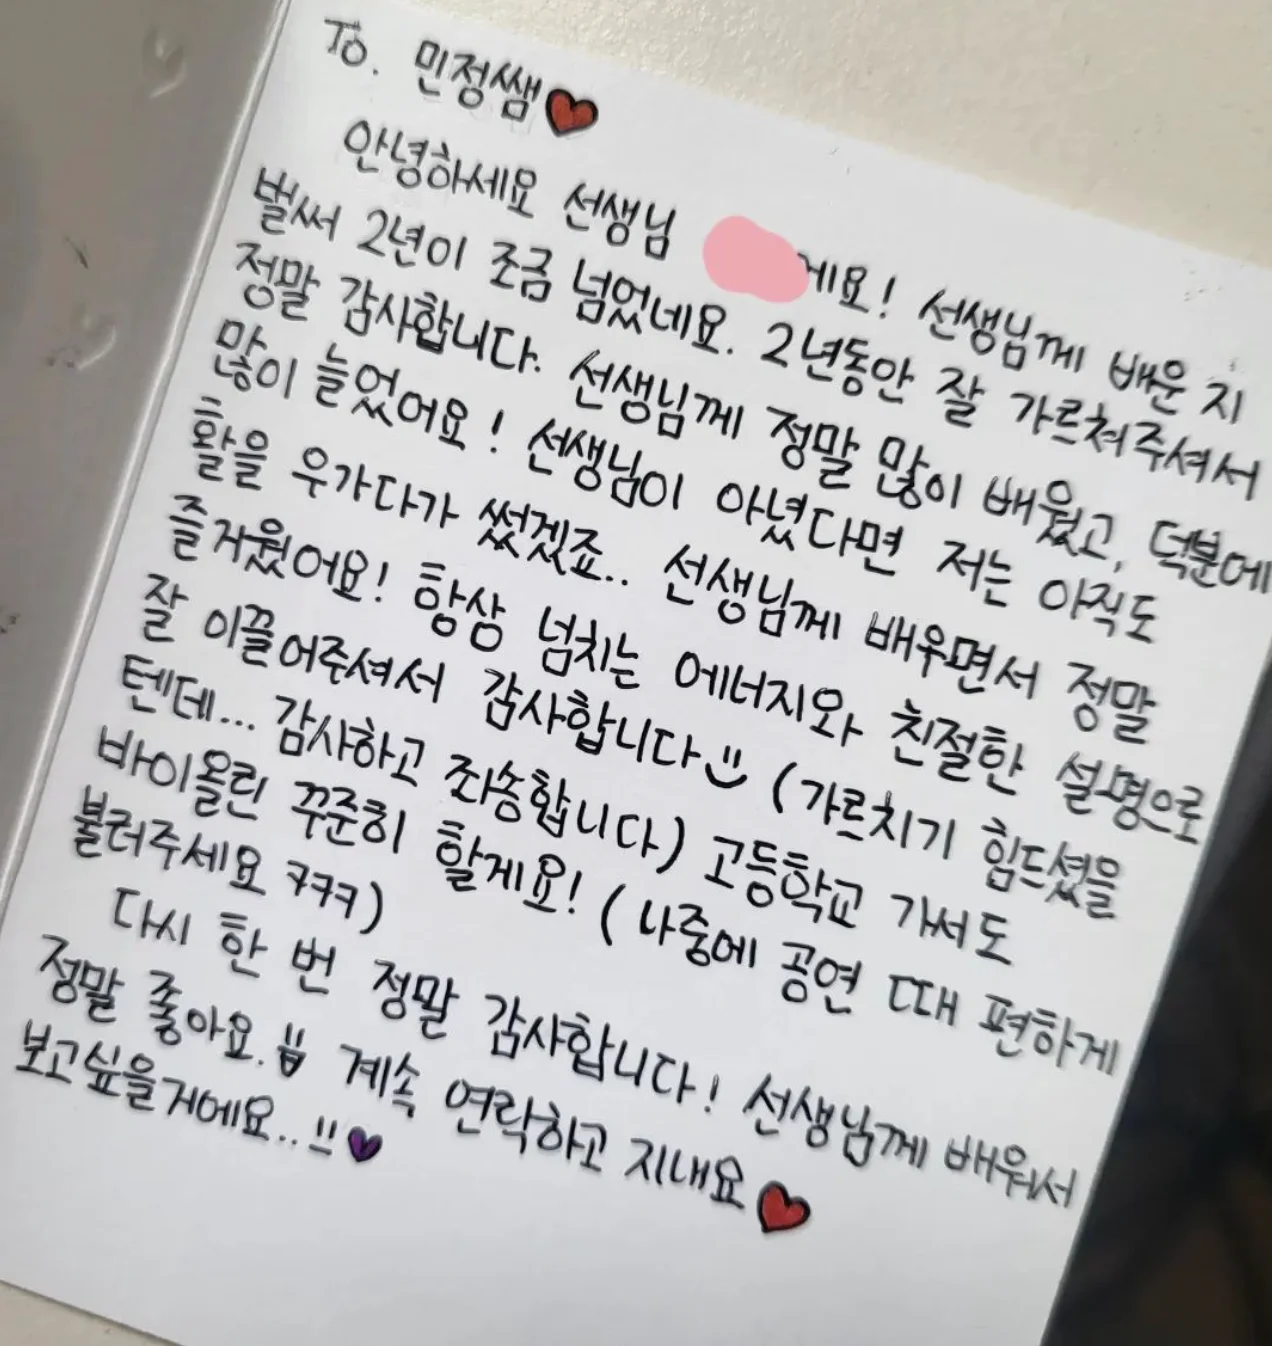 To. 민정쌤
안녕하세요 선생님 에요! 선생님께 배운 지
벌써 2년이 조금 넘었네요. 2년동안 잘 가르쳐주셔서
정말 감사합니다. 선생님께 정말 많이 배웠고, 덕분에
많이 늘었어요! 선생님이 아녔다면 저는 아직도
활을 우가다가 썼겠죠.. 선생님께 배우면서 정말
즐거웠어요! 항상 넘치는 에너지와 친절한 설명으로
잘 이끌어주셔서 감사합니다 (가르치기 힘드셨을
텐데... 감사하고 죄송합니다) 고등학교 가서도
바이올린 꾸준히 할게요! (나중에 공연 때 편하게
불러주세요 ㅋㅋㅋ)
다시 한 번 정말 감사합니다! 선생님께 배워서
정말 좋아요. 계속 연락하고 지내요
보고싶을거에요..!!